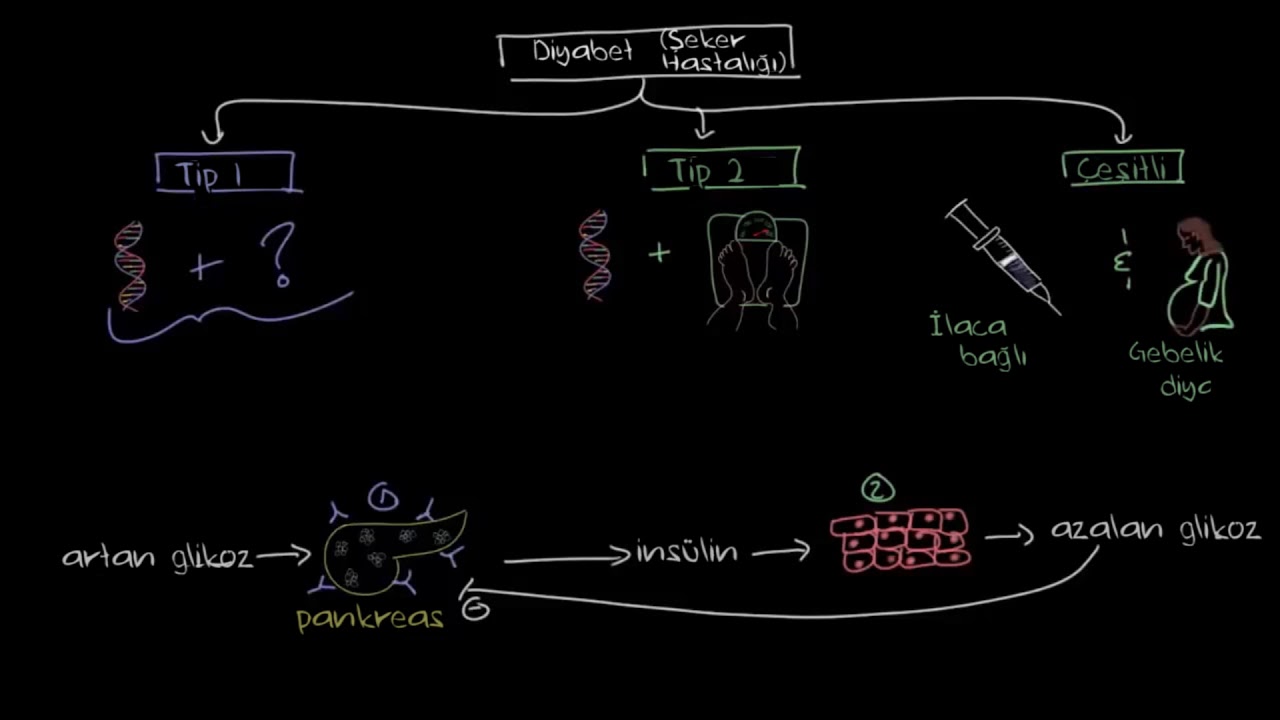 Diyabet (Şeker
Hastalığı)
Tip 1
Tip 2
Çeşitli
+ ?
+
&
İlaca
bağlı
Gebelik
diyc
1
2
artan glikoz
insülin
azalan glikoz
pankreas
-